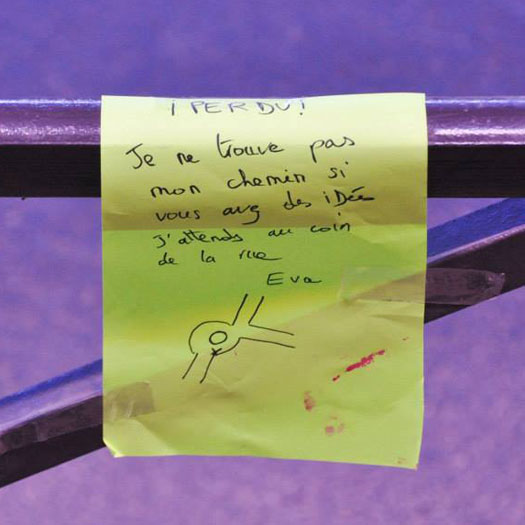 ¡PERDU!
Je ne trouve pas
mon chemin si
vous avez des iDées
j'attends au coin
de la rue
Eva